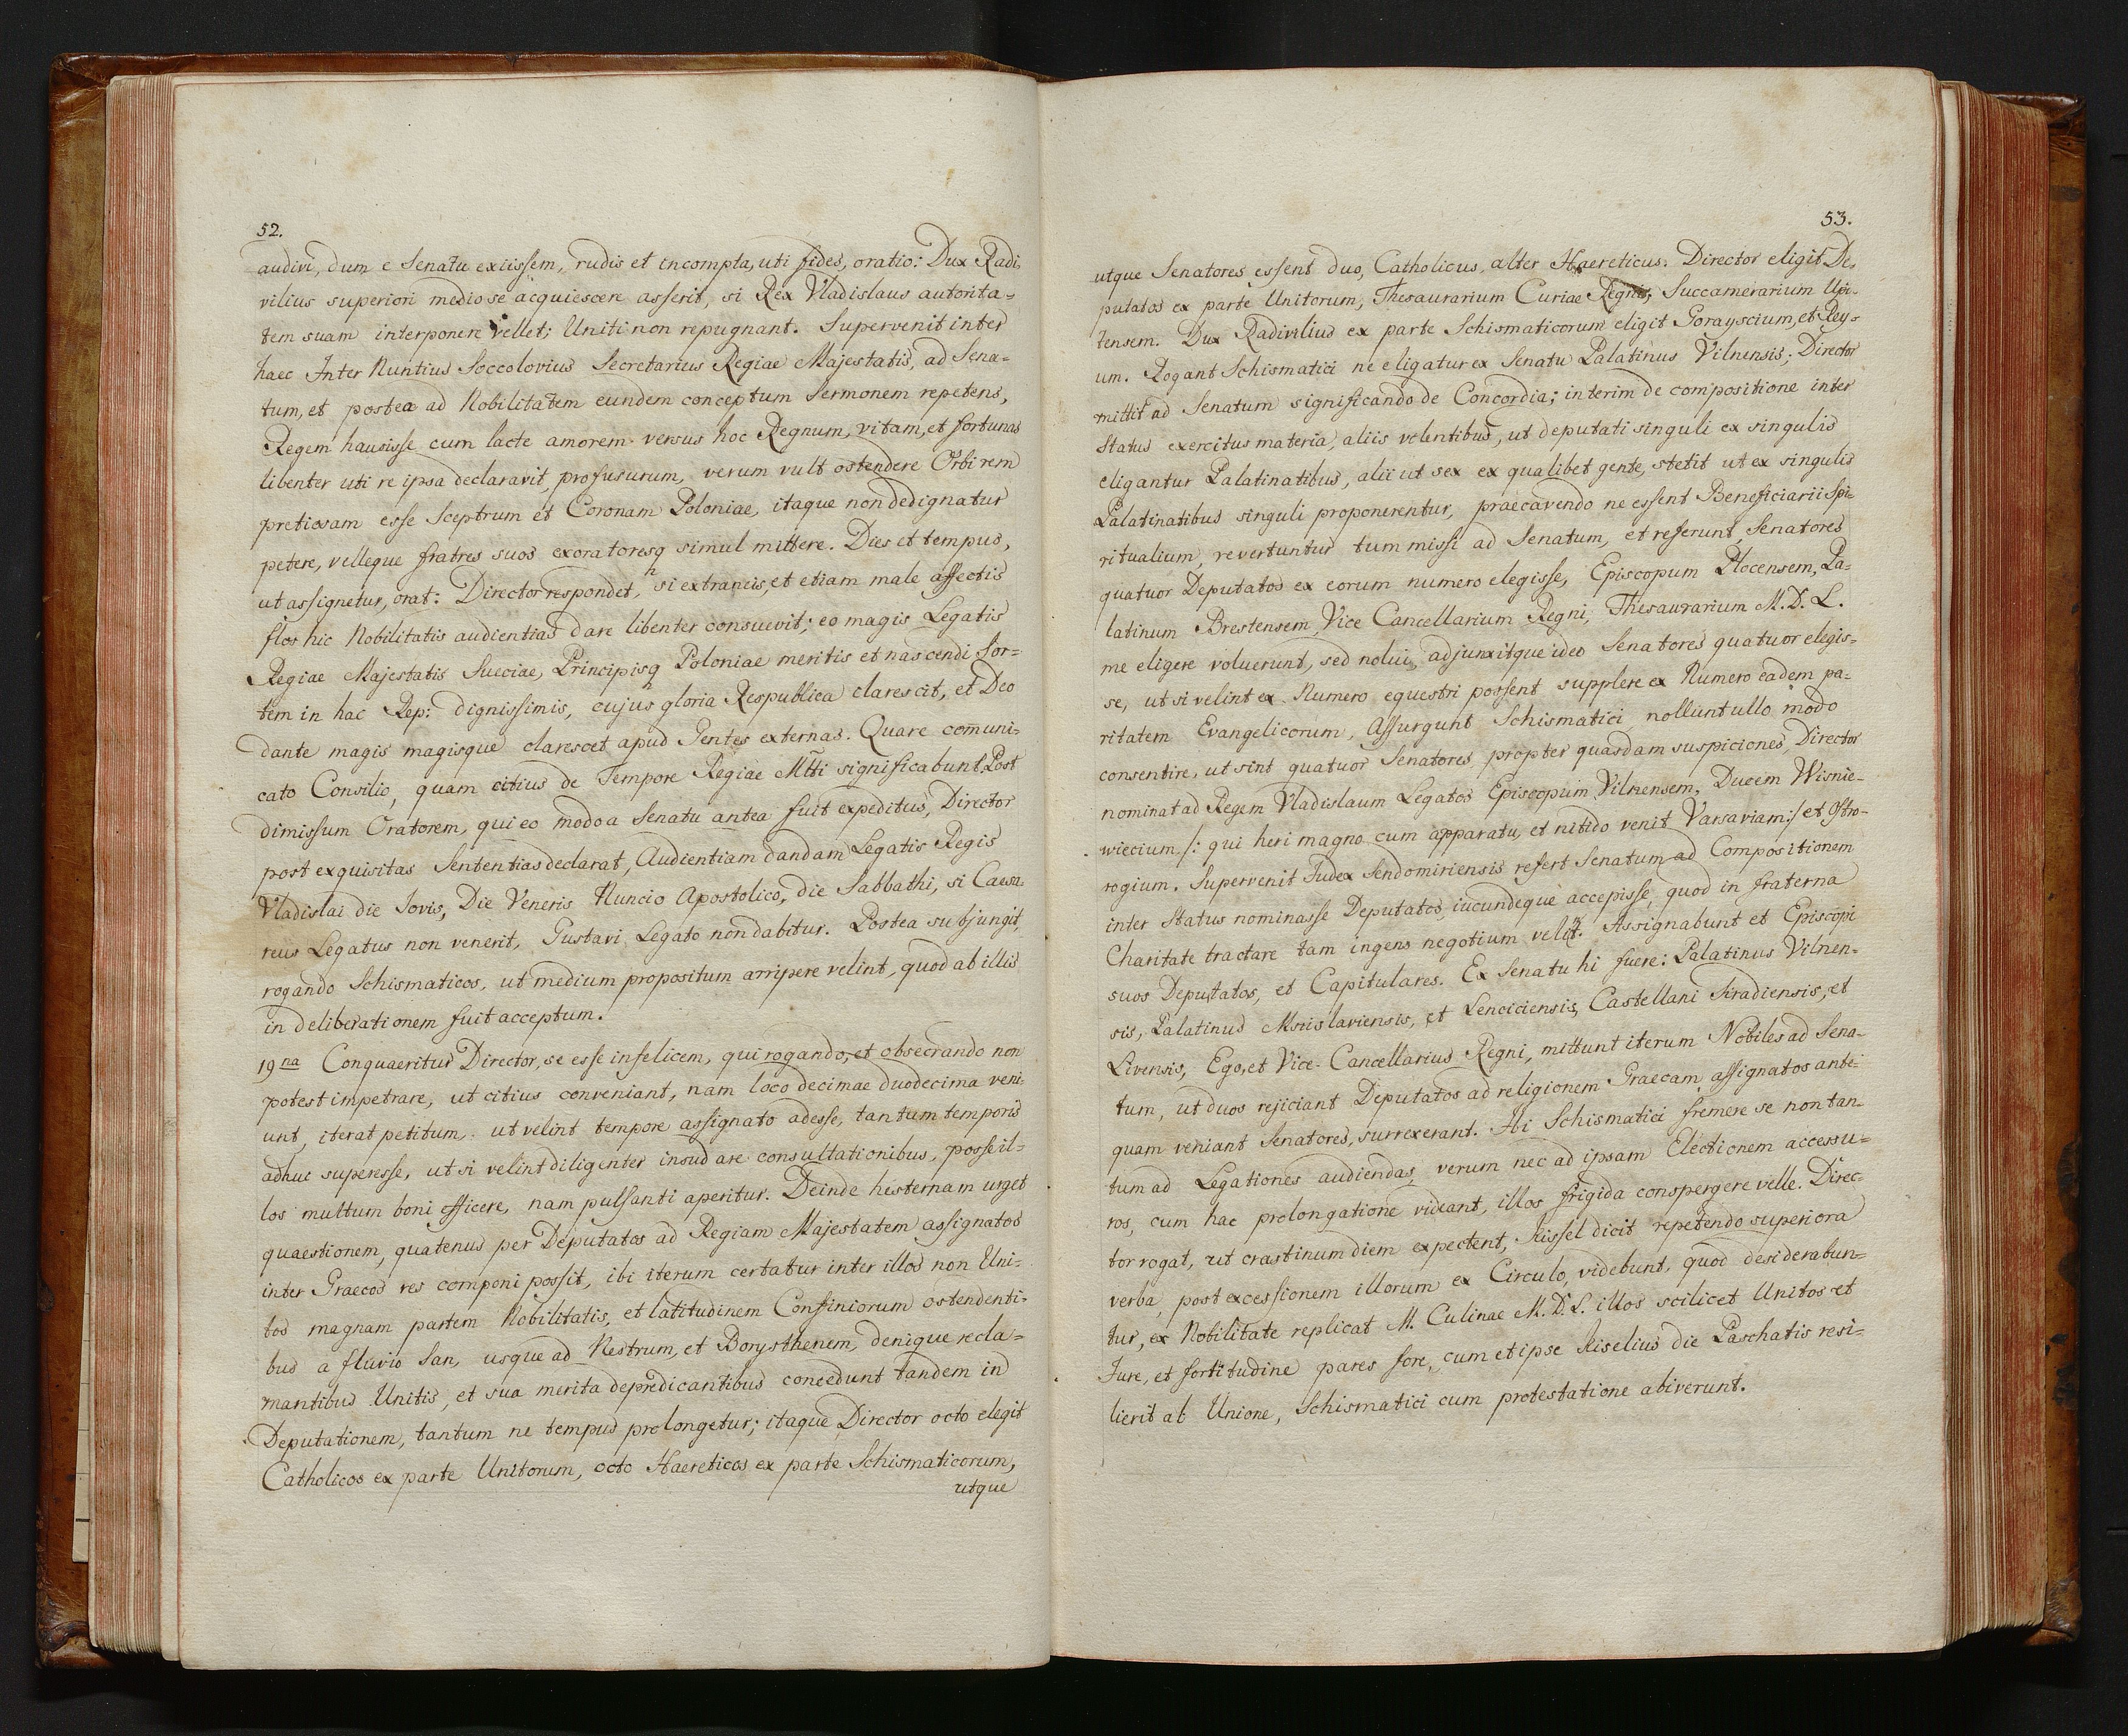 52.
audivi, dum e Senatu exiissem, rudis et incompta, uti fides, oratio: Dux Radi-
vilius superiori medio se acquiescere asserit, si Rex Vladislaus autorita-
tem suam interponere vellet; Uniti non repugnant. Supervenit inter
haec Inter Nuntius Soccolovius Secretarius Regiae Majestatis, ad Sena-
tum, et postea ad Nobilitatem eundem conceptum Sermonem repetens,
Regem hausisse cum lacte amorem versus hoc Regnum, vitam, et fortunas
libenter uti re ipsa declaravit, profusurum, verum vult ostendere Orbi rem
pretiosam esse Sceptrum et Coronam Poloniae, itaque non dedignatur
petere, velleque fratres suos exoratoresq simul mittere. Dies et tempus,
ut assignetur, orat: Director respondet, si extraneis, et etiam male affectis
flos hic Nobilitatis audientias dare libenter consuevit; eo magis Legatis
Regiae Majestatis Sueciae, Principisq Poloniae meritis et nascendi sor-
tem in hac Rep: dignissimis, cujus gloria Respublica clarescit, et Deo
dante magis magisque clarescet apud Gentes externas. Quare com̄uni-
cato Consilio, quam citius de Tempore Regiae Mtti significabunt. Post
dimissum Oratorem, qui eo modo a Senatu antea fuit expeditus, Director
post exquisitas Sententias declarat, Audientiam dandam Legatis Regis
Vladislai die Jovis, Die Veneris Nuncio Apostolico, die Sabbathi, si Caesa-
reus Legatus non venerit, Gustavi Legato non dabitur. Postea subjungit,
rogando Schismaticos, ut medium propositum arripere velint, quod ab illis
in deliberationem fuit acceptum.
19na Conquaeritur Director, se esse infelicem, qui rogando, et obsecrando non
potest impetrare, ut citius conveniant, nam loco decimae duodecima veni-
unt, iterat petitum: ut velint tempore assignato adesse, tantum temporis
adhuc superesse, ut si velint diligenter insudare consultationibus, posse il-
los multum boni efficere, nam pulsanti aperitur. Deinde hesternam urget
quaestionem, quatenus per Deputatos ad Regiam Majestatem assignatos
inter Graecos res componi possit, ibi iterum certatur inter illos non Uni-
tos magnam partem Nobilitatis, et latitudinem Confiniorum ostendenti-
bus a fluvio San, usque ad Nestrum, et Borysthenem, denique recla-
mantibus Unitis, et sua merita depredicantibus concedunt tandem in
Deputationem, tantum ne tempus prolongetur; itaque Director octo elegit
Catholicos ex parte Unitorum, octo Haereticos ex parte Schismaticorum,
utque
53.
utque Senatores essent duo, Catholicus, alter Haereticus. Director eligit De-
putatos ex parte Unitorum, Thesaurarium Curiae Regni, Succamerarium Upi-
tensem. Dux Radivilius ex parte Schismaticorum eligit Gorayscium, et Rey-
um. Rogant Schismatici ne eligatur ex Senatu Palatinus Vilnensis; Director
mittit ad Senatum significando de Concordia; interim de compositione inter
Status exercitus materia, aliis velentibus, ut deputati singuli ex singulis
eligantur Palatinatibus, alii ut sex ex qualibet gente, stetit ut ex singulis
Palatinatibus singuli proponerentur, praecavendo ne essent Beneficiarii Spi-
ritualium, revertuntur tum missi ad Senatum, et referunt, Senatores
quatuor Deputatos ex eorum numero elegisse, Episcopum Plocensem, Pa-
latinum Brestensem, Vice Cancellarium Regni, Thesaurarium M.D.L.
me eligere voluerunt, sed nolui, adjunxitque ideo Senatores quatuor elegis-
se, ut si velint ex Numero equestri possent supplere ex Numero eadem pa-
ritatem Evangelicorum, Assurgunt Schismatici nolluntullo modo
consentire, ut sint quatuor Senatores, propter quasdam suspiciones, Director
nominat ad Regem Vladislaum Legatos Episcopum Vilnensem, Ducem Wisnie-
wiecium /: qui heri magno cum apparatu, et nitido venit Varsaviam :/ et Ostro-
rogium. Supervenit Judex Sendomiriensis refert Senatum ad Compositionem
inter Status nominasse Deputatos, iucundeque accepisse, quod in fraterna
Charitate tractare tam ingens negotium velit. Assignabunt et Episcopi
suos Deputatos, et Capitulares. Ex Senatu hi fuere: Palatinus Vilnen-
sis, Palatinus Mscislaviensis, et Lenciciensis, Castellani Siradiensis, et
Livensis, Ego, et Vice-Cancellarius Regni, mittunt iterum Nobiles ad Sena-
tum, ut duos rejiciant Deputatos ad religionem Graecam assignatos ante-
quam veniant Senatores, surrexerant. Hi Schismatici fremere se non tan-
tum ad Legationes audiendas, verum nec ad ipsam Electionem accessu-
ros, cum hac prolongatione videant, illos frigida conspergere velle. Direc-
tor rogat, ut crastinum diem expectent, Kissel dicit repetendo superiora
verba, post excessionem illorum ex Circulo, videbunt, quod desiderabun-
tur, ex Nobilitate replicat M. Culinae M.D.L. illos scilicet Unitos et
Jure, et fortitudine pares fore, cum et ipse Kiselius die Paschatis resi-
lierit ab Unione, Schismatici cum protestatione abiverunt.